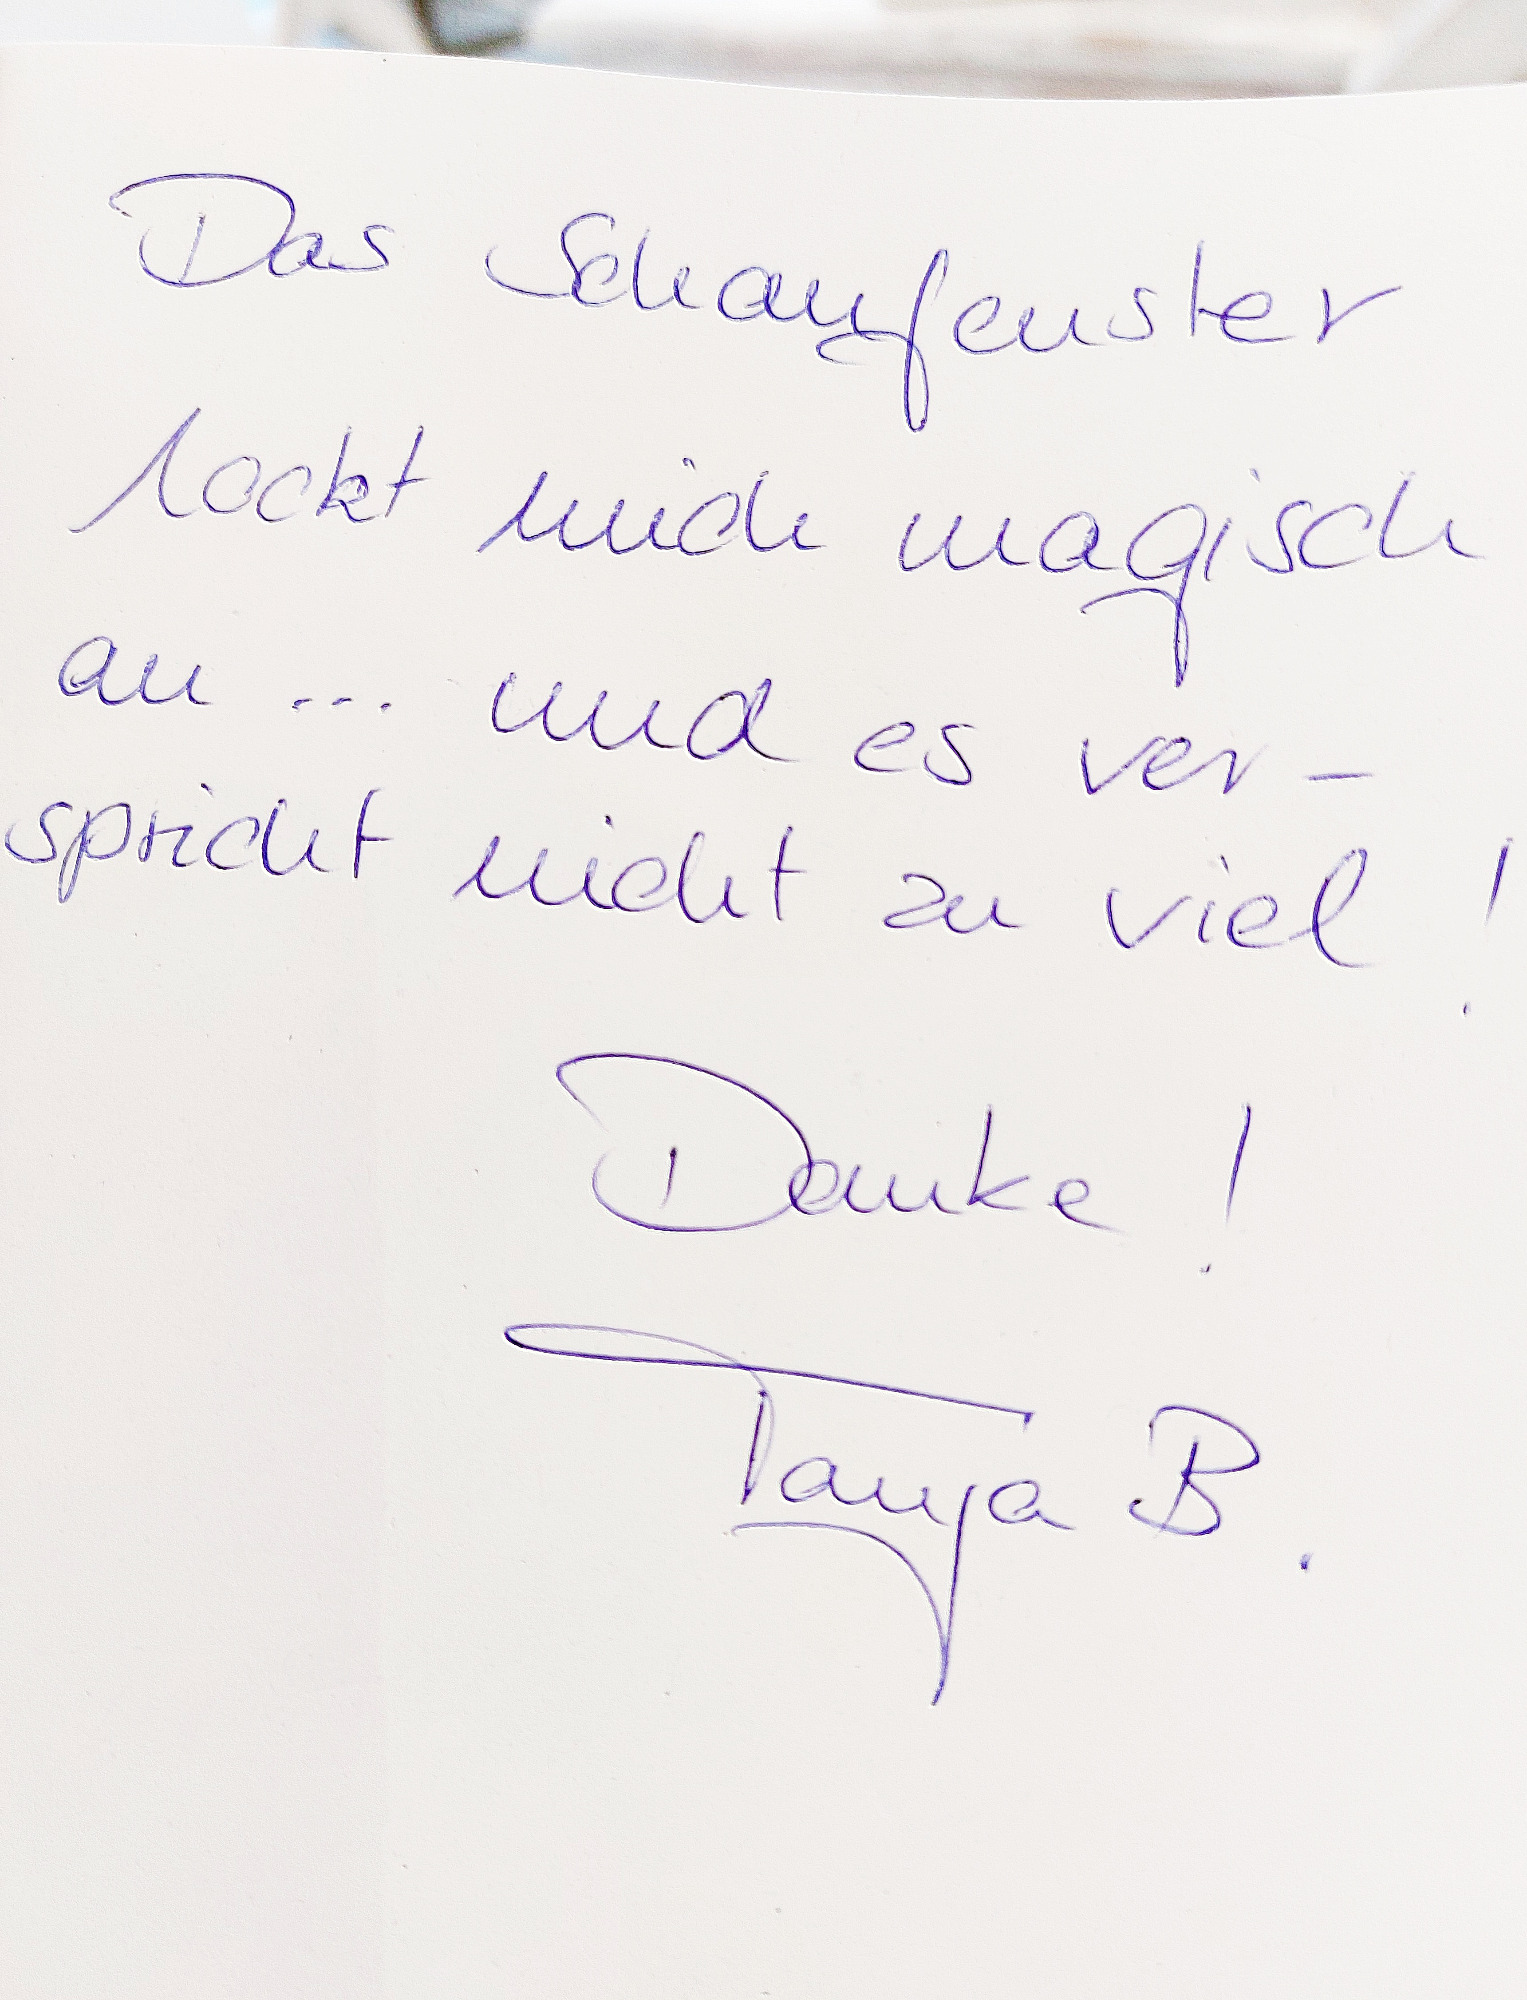 Das Schaufenster
lockt mich magisch
an ... und es ver-
spricht nicht zu viel !
Danke !
Tanja B.